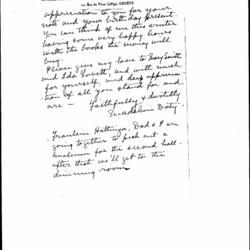 Rue du Vieux Collège, GENÈVE
appreciation to you for your
note and your birthday present.
You can think of me this winter
having some very happy hours
with the books the money will
buy.
Please give my love to Mary Smith
and Ida Lovett, and with much
for yourself, and deep apprecia
tion of all you stand for and
are — Faithfully & devotedly
Madeleine Doty
Fraulein Hattinga, Dad & I are
going together to pick out a
linoleum for the second hall—
after that we'll get to the
dinning room